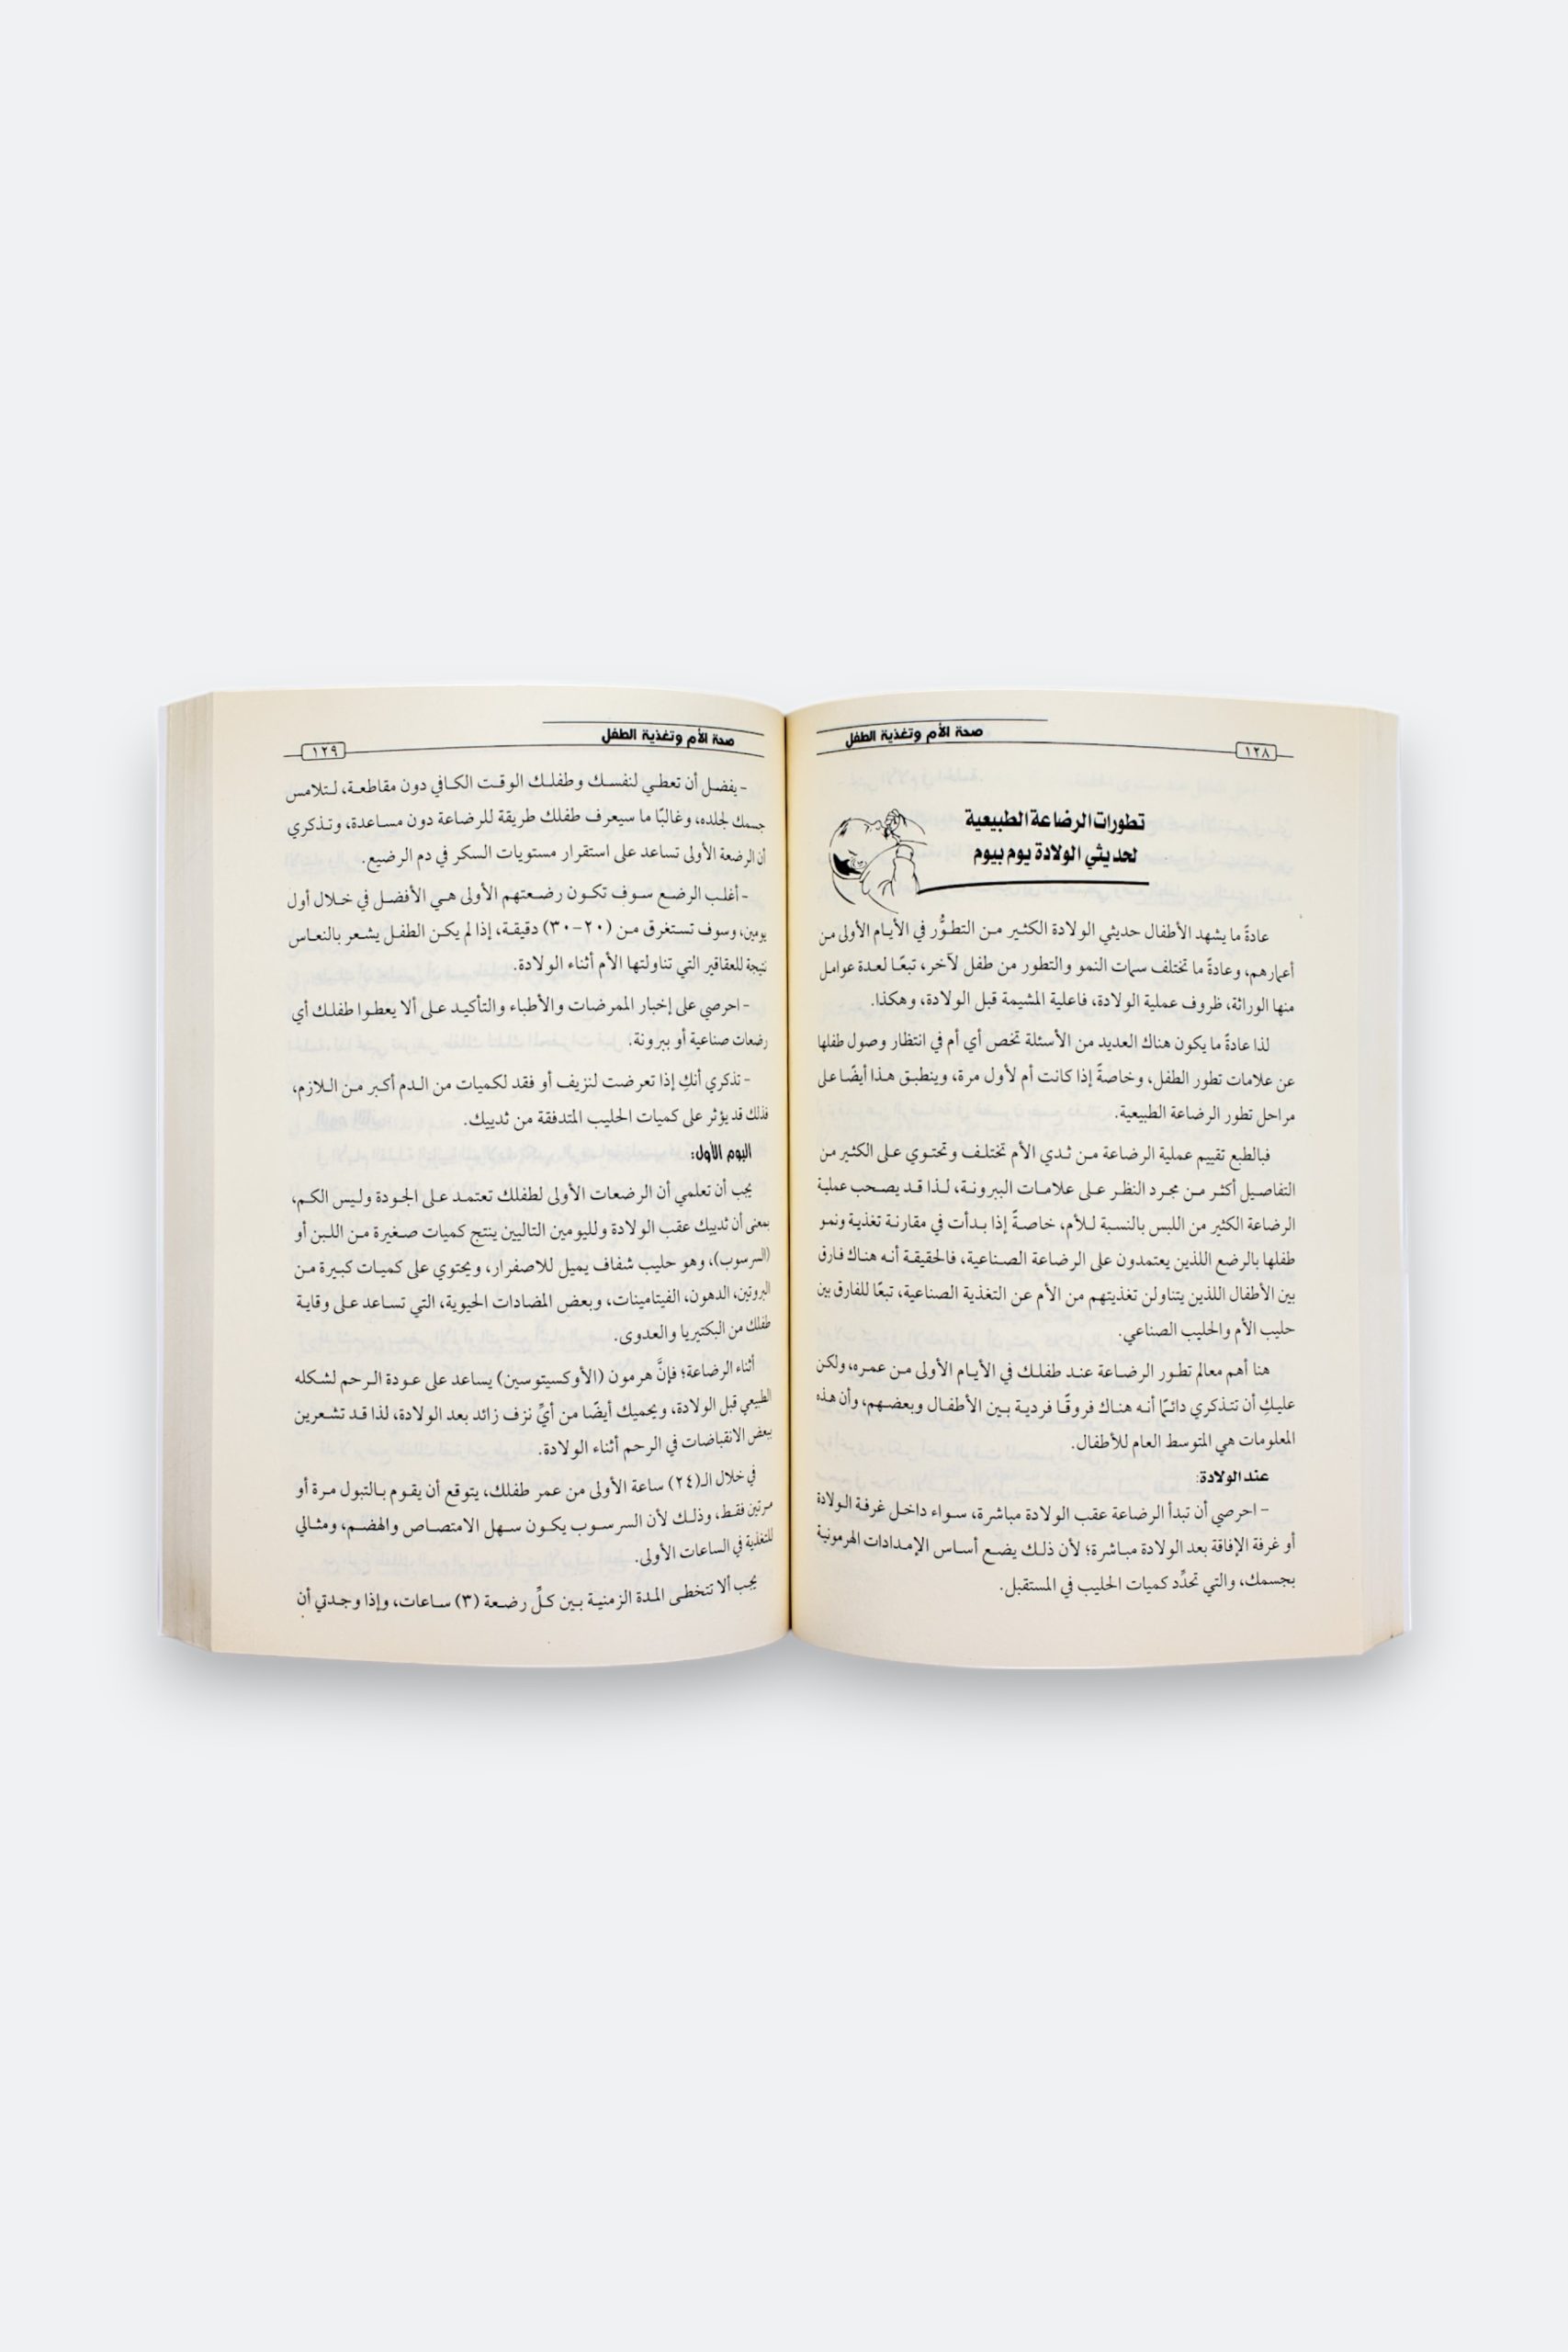 صحة الأم وتغذية الطفل
١٢٨
تطورات الرضاعة الطبيعية
لحديثي الولادة يوم بيوم
عادةً ما يشهد الأطفال حديثي الولادة الكثير من التطوُّر في الأيام الأولى من
أعمارهم، وعادةً ما تختلف سمات النمو والتطور من طفل لآخر، تبعًا لعدة عوامل
منها الوراثة، ظروف عملية الولادة، فاعلية المشيمة قبل الولادة، وهكذا.
لذا عادةً ما يكون هناك العديد من الأسئلة تخص أي أم في انتظار وصول طفلها
عن علامات تطور الطفل، وخاصةً إذا كانت أم لأول مرة، وينطبق هذا أيضًا على
مراحل تطور الرضاعة الطبيعية.
فبالطبع تقييم عملية الرضاعة من ثدي الأم تختلف وتحتوي على الكثير من
التفاصيل أكثر من مجرد النظر على علامات الببرونة، لذا قد يصحب عملية
الرضاعة الكثير من اللبس بالنسبة للأم، خاصةً إذا بدأت في مقارنة تغذية ونمو
طفلها بالرضع اللذين يعتمدون على الرضاعة الصناعية، فالحقيقة أنه هناك فارق
بين الأطفال اللذين يتناولن تغذيتهم من الأم عن التغذية الصناعية، تبعًا للفارق بين
حليب الأم والحليب الصناعي.
هنا أهم معالم تطور الرضاعة عند طفلك في الأيام الأولى من عمره، ولكن
عليكِ أن تتذكري دائمًا أنه هناك فروقًا فردية بين الأطفال وبعضهم، وأن هذه
المعلومات هي المتوسط العام للأطفال.
عند الولادة:
- احرصي أن تبدأ الرضاعة عقب الولادة مباشرة، سواء داخل غرفة الولادة
أو غرفة الإفاقة بعد الولادة مباشرة؛ لأن ذلك يضع أساس الإمدادات الهرمونية
بجسمك، والتي تحدِّد كميات الحليب في المستقبل.
صحة الأم وتغذية الطفل
١٢٩
- يفضل أن تعطي لنفسك وطفلك الوقت الكافي دون مقاطعة، لتلامس
جسمك لجلده، وغالبًا ما سيعرف طفلك طريقة للرضاعة دون مساعدة، وتذكري
أن الرضعة الأولى تساعد على استقرار مستويات السكر في دم الرضيع.
- أغلب الرضع سوف تكون رضعتهم الأولى هي الأفضل في خلال أول
يومين، وسوف تستغرق من (٢٠-٣٠) دقيقة، إذا لم يكن الطفل يشعر بالنعاس
نتيجة للعقاقير التي تناولتها الأم أثناء الولادة.
- احرصي على إخبار الممرضات والأطباء والتأكيد على ألا يعطوا طفلك أي
رضعات صناعية أو ببرونة.
- تذكري أنكِ إذا تعرضت لنزيف أو فقد لكميات من الدم أكبر من اللازم،
فذلك قد يؤثر على كميات الحليب المتدفقة من ثدييك.
اليوم الأول:
يجب أن تعلمي أن الرضعات الأولى لطفلك تعتمد على الجودة وليس الكم،
بمعنى أن ثدييك عقب الولادة ولليومين التاليين ينتج كميات صغيرة من اللبن أو
(السرسوب)، وهو حليب شفاف يميل للاصفرار، ويحتوي على كميات كبيرة من
البروتين، الدهون، الفيتامينات، وبعض المضادات الحيوية، التي تساعد على وقاية
طفلك من البكتيريا والعدوى.
أثناء الرضاعة؛ فإنَّ هرمون (الأوكسيتوسين) يساعد على عودة الرحم لشكله
الطبيعي قبل الولادة، ويحميك أيضًا من أيِّ نزف زائد بعد الولادة، لذا قد تشعرين
ببعض الانقباضات في الرحم أثناء الولادة.
في خلال الـ(٢٤) ساعة الأولى من عمر طفلك، يتوقع أن يقوم بالتبول مرة أو
مرتين فقط، وذلك لأن السرسوب يكون سهل الامتصاص والهضم، ومثالي
للتغذية في الساعات الأولى.
يجب ألا تتخطى المدة الزمنية بين كلِّ رضعة (٣) ساعات، وإذا وجدتي أن